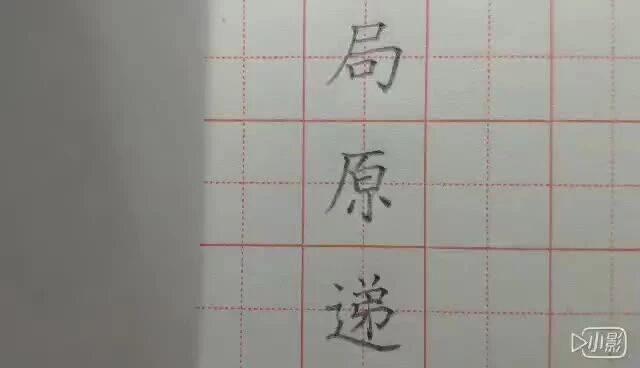 局
原
递
小影